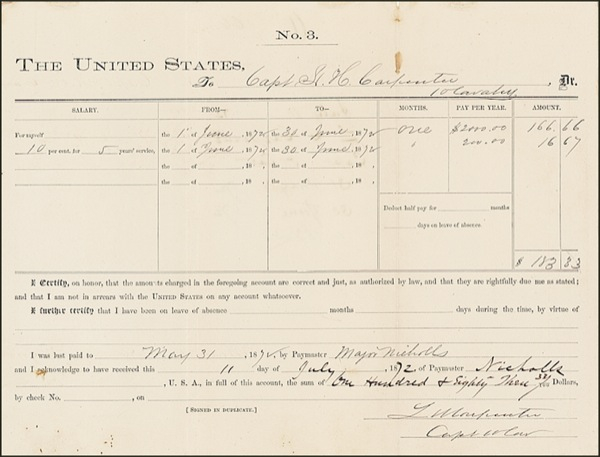 No. 3.
THE UNITED STATES,
To Capt. L. H. Carpenter 10 Cavalry, Dr.
SALARY. FROM— TO— MONTHS. PAY PER YEAR. AMOUNT.
For myself the 1 of June, 1872 the 30 of June, 1872 one $2000.00 166.66
10 per cent. for 5 years' service, the 1 of June, 1872 the 30 of June, 1872 " 200.00 16 67
the of , 18 , the of , 18 ,
the of , 18 , the of , 18 ,
Deduct half pay for months
days on leave of absence.
$ 183 33
I Certify, on honor, that the amounts charged in the foregoing account are correct and just, as authorized by law, and that they are rightfully due me as stated;
and that I am not in arrears with the UNITED STATES on any account whatsoever.
I further certify that I have been on leave of absence months days during the time, by virtue of
I was last paid to May 31 1872, by Paymaster Major Nicholls
and I acknowledge to have received this 11 day of July, 1872, of Paymaster Nicholls
, U. S. A., in full of this account, the sum of One Hundred & Eighty Three 33/100 Dollars,
by check No. , on
[SIGNED IN DUPLICATE.]
L H Carpenter
Capt 10 Cav